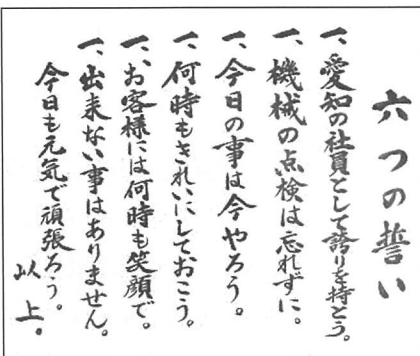 六つの誓い
一、愛知の社員として誇りを持とう。
一、機械の点検は忘れずに。
一、今日の事は今やろう。
一、何時もきれいにしておこう。
一、お客様には何時も笑顔で。
一、出来ない事はありません。
今日も元気で頑張ろう。
以上。